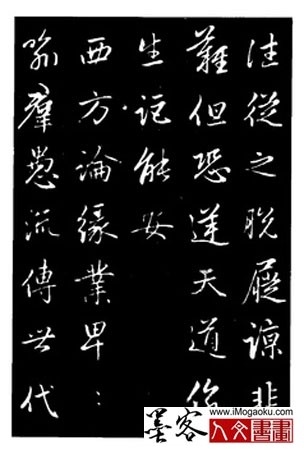 往從之脫屣諒非
難但恐逆天道偷
生詎能安
西方論緣業卑：
喻羣愚流傳世代
墨客 www.iMogaoku.com
人文書畫